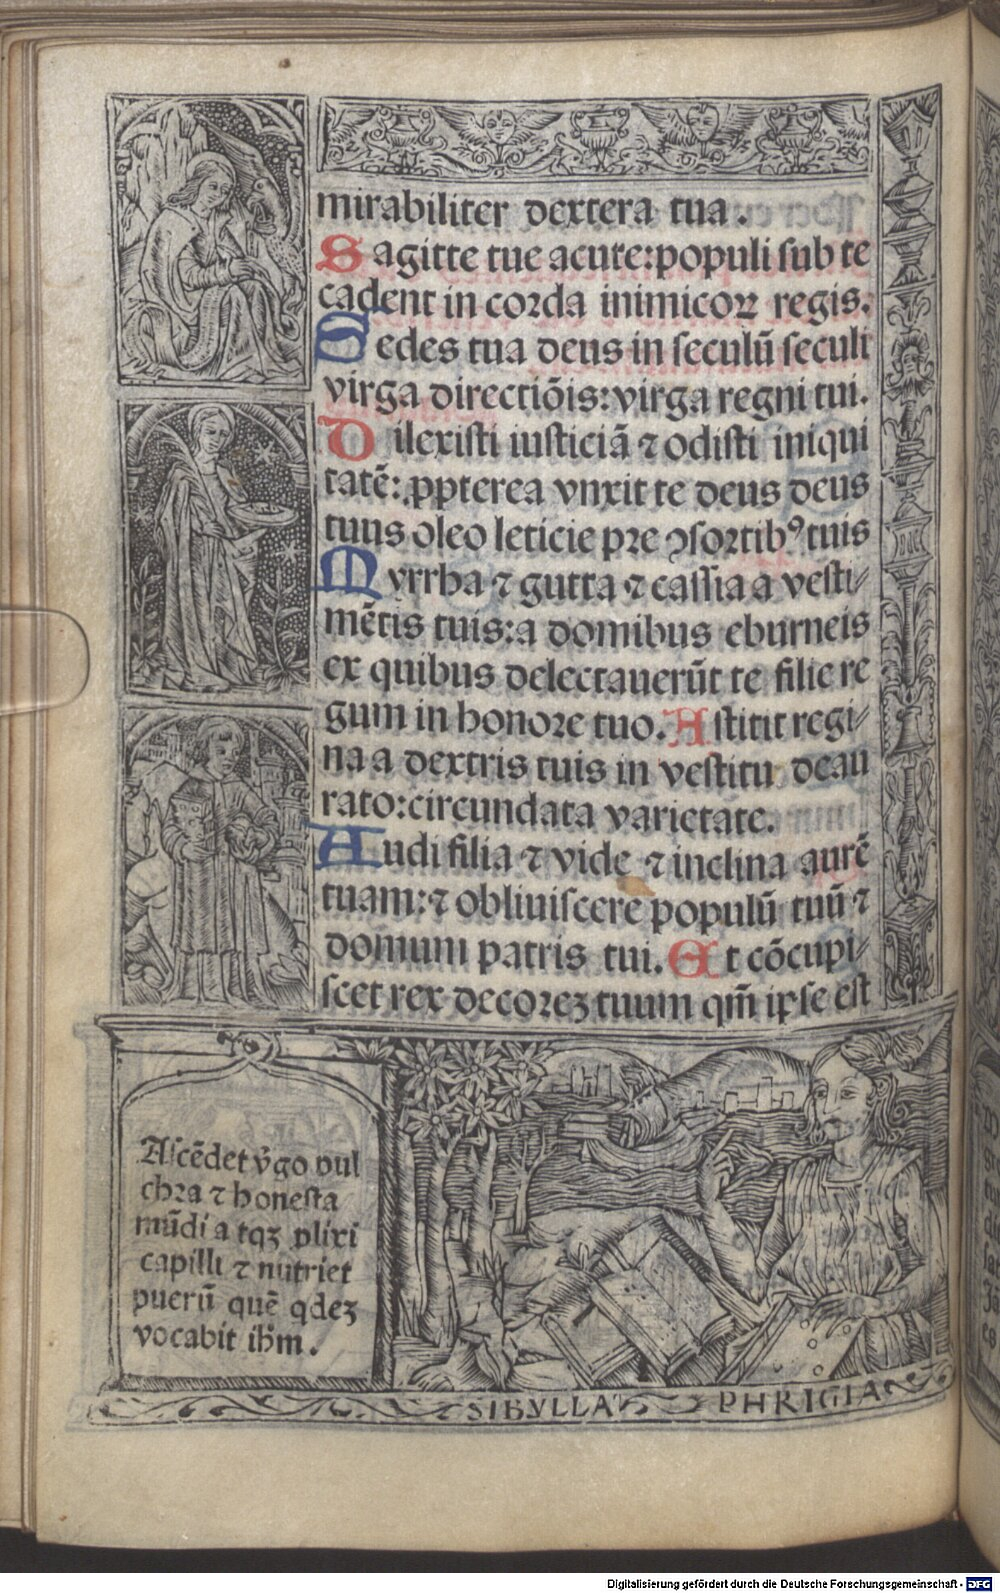 mirabiliter dextera tua.
Sagitte tue acute: populi sub te
cadent in corda inimicoꝝ regis.
Sedes tua deus in seculū seculi
virga directiōis: virga regni tui.
Dilexisti iusticiā ⁊ odisti iniqui
tatē: ꝓpterea vnxit te deus deus
tuus oleo leticie pre ꝯsortibꝰ tuis
Myrrha ⁊ gutta ⁊ cassia a vesti⸗
mētis tuis: a domibus eburneis
ex quibus delectauerūt te filie re
gum in honore tuo. Astitit regi⸗
na a dextris tuis in vestitu deau
rato: circundata varietate.
Audi filia ⁊ vide ⁊ inclina aurē
tuam: ⁊ obliuiscere populū tuū ⁊
domum patris tui. Et cōcupi⸗
scet rex decoreꝫ tuum qm̄ ipse est
Ascēdet v̄go pul
chra ⁊ honesta
mūdi a tqꝫ plixi
capilli ⁊ nutriet
puerū quē qdeꝫ
vocabit ih̄m.
SIBYLLA PHRIGIA
Digitalisierung gefördert durch die Deutsche Forschungsgemeinschaft - DFG